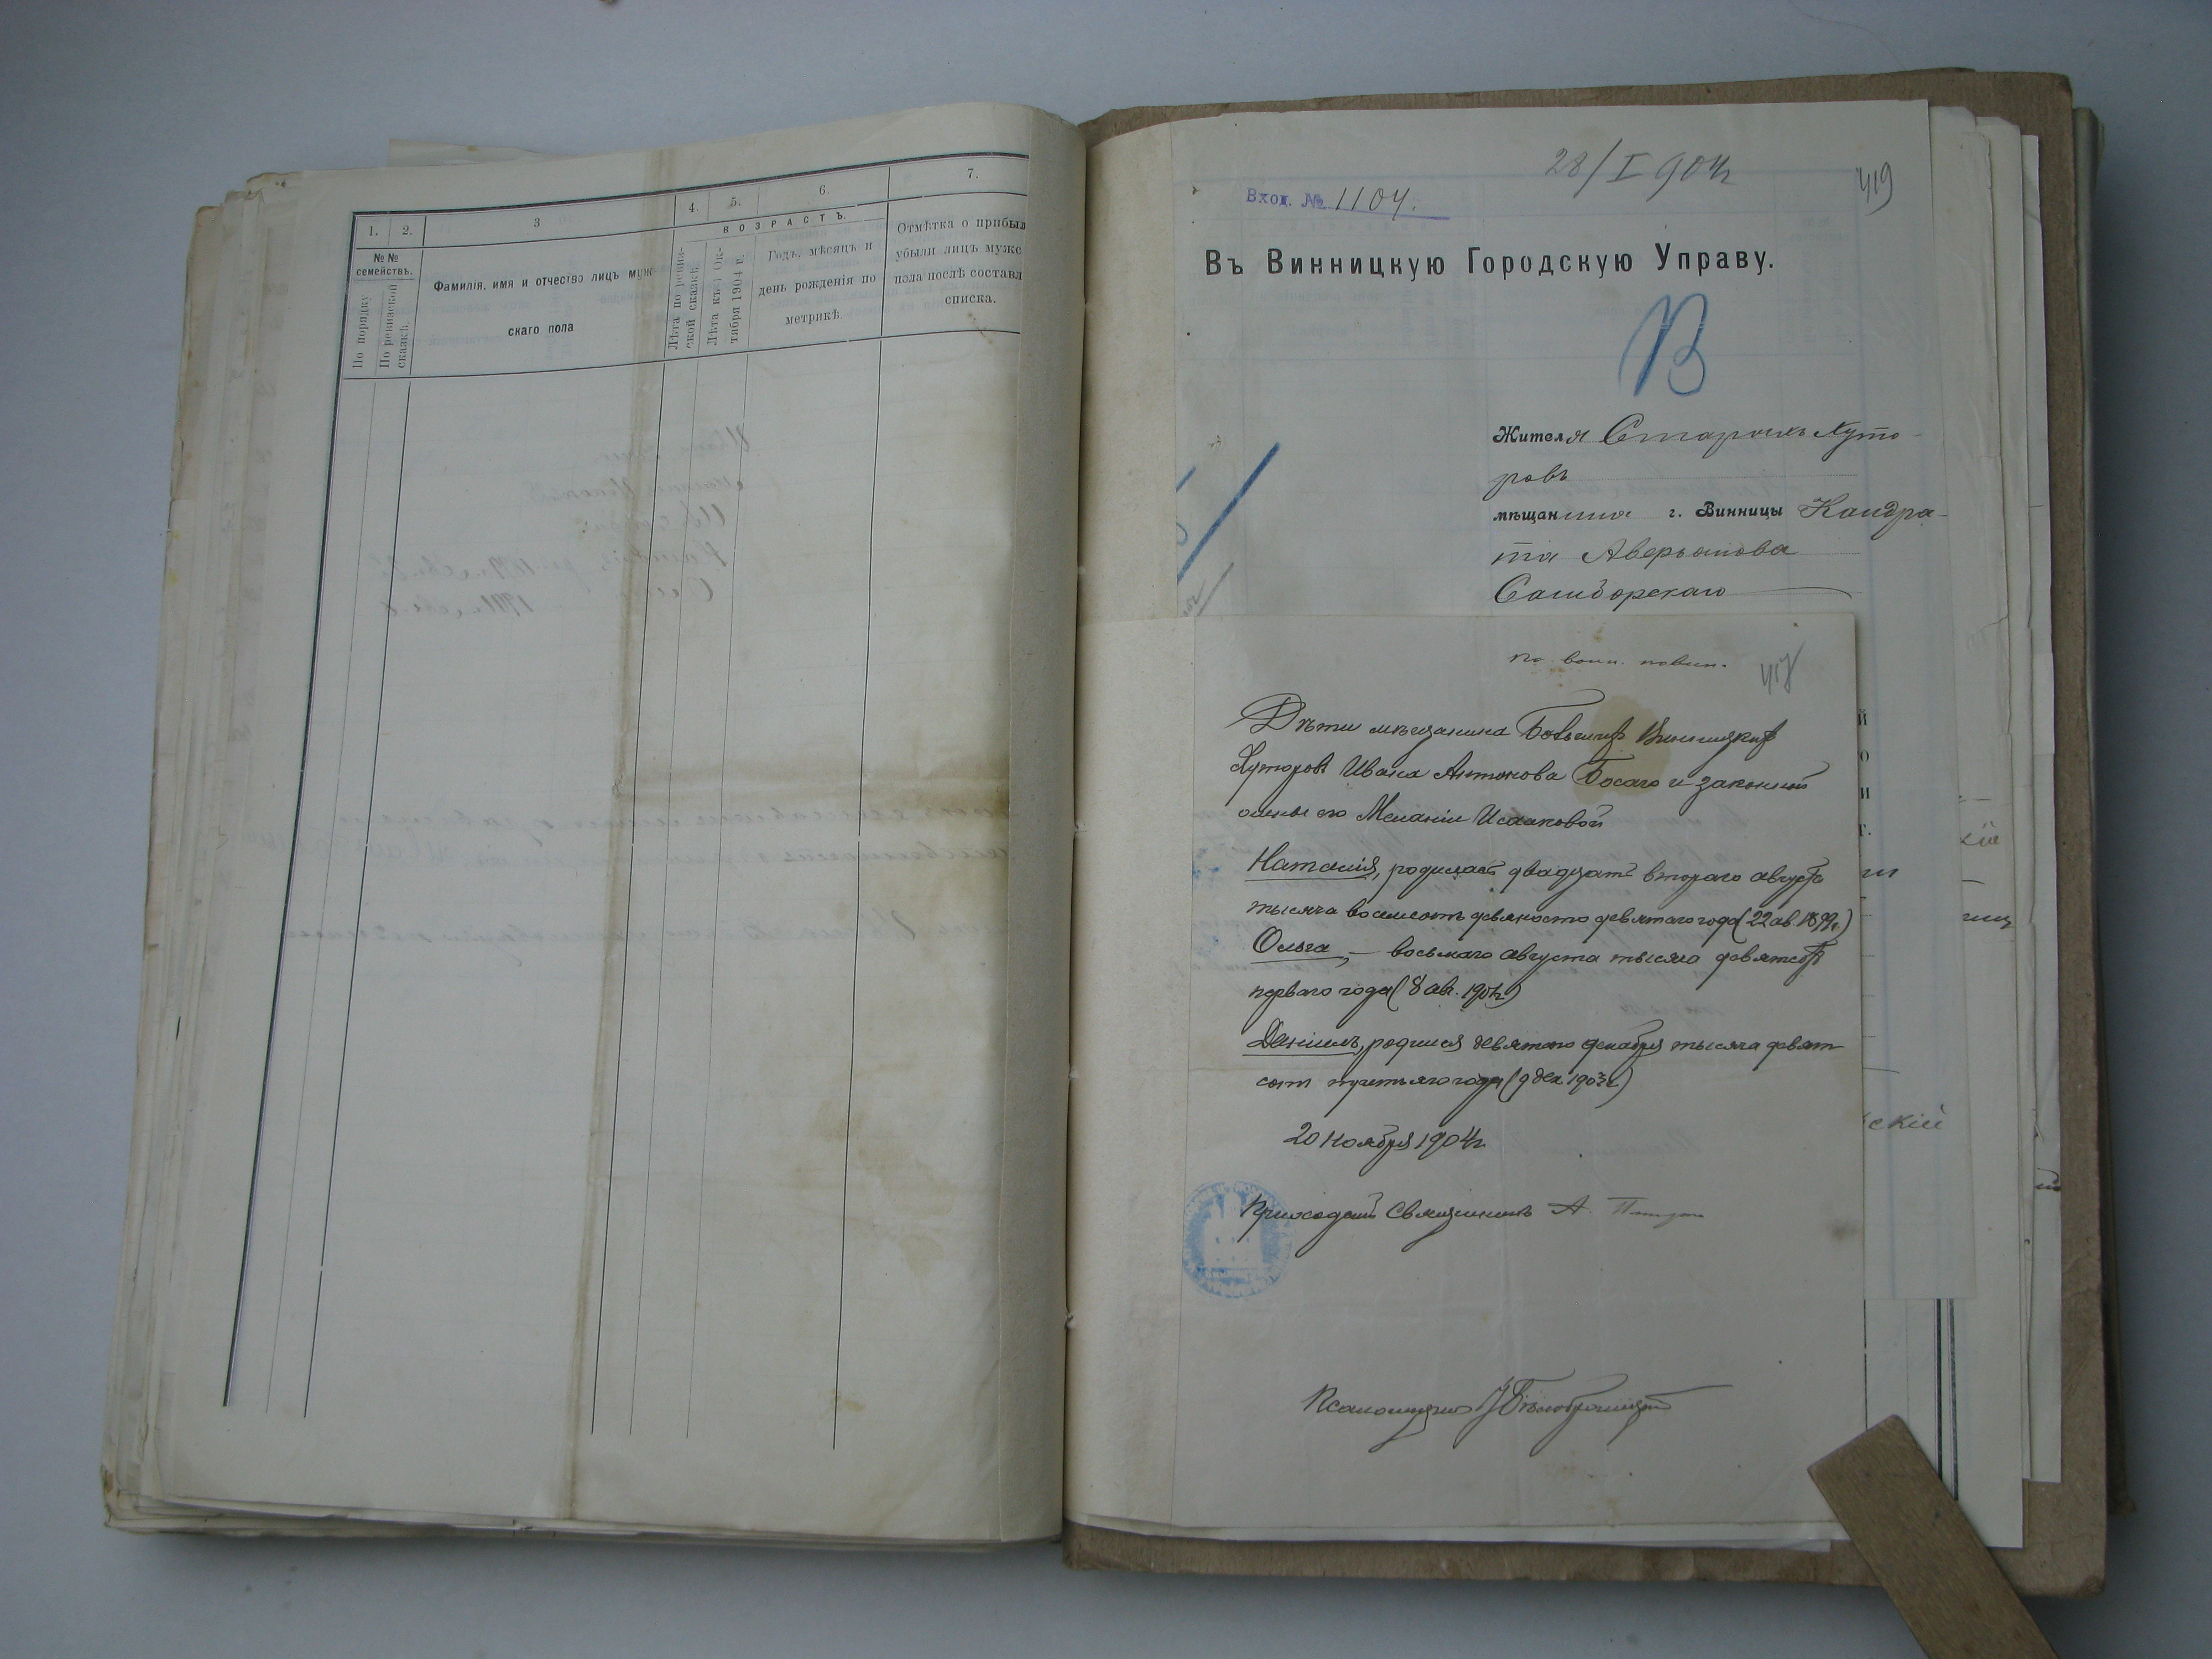 1.
2.
3
4.
5.
6.
7.
№№ семействъ.
По порядку
По ревизской сказкѣ.
Фамилія, имя и отчество лицъ муж-
скаго пола
ВОЗРАСТЪ.
Лѣта по ревиз-
ской сказкѣ.
Лѣта къ 1 Ок-
тября 1904 г.
Годъ, мѣсяцъ и
день рожденія по
метрикѣ.
Отмѣтка о прибыл
убыли лицъ мужс
пола послѣ составл
списка.
28/I 904 г
419
Вход. № 1104.
Въ Винницкую Городскую Управу.
В
Жителя Старыхъ Хуто-
ровъ
мѣщанина г. Винницы Кандра-
та Аверьянова
Сандорскаго
по воин. повин.
417
Дѣти мѣщанина Винницких
Хуторовъ Ивана Антонова Босаго и законной
жены его Меланіи Исааковой
Наталія, родилась двадцать втораго августа
тысяча восемсотъ девяносто девятаго года (22 ав. 1899 г.)
Ольга, — восьмаго августа тысяча девятсотъ
перваго года (8 авг. 1901 г.)
Даніилъ, родился девятаго декабря тысяча девят
сотъ третьяго года (9 дек. 1903 г.)
20 Ноября 1904 г.
Приходскій Священникъ А.
Псаломщикъ
скій